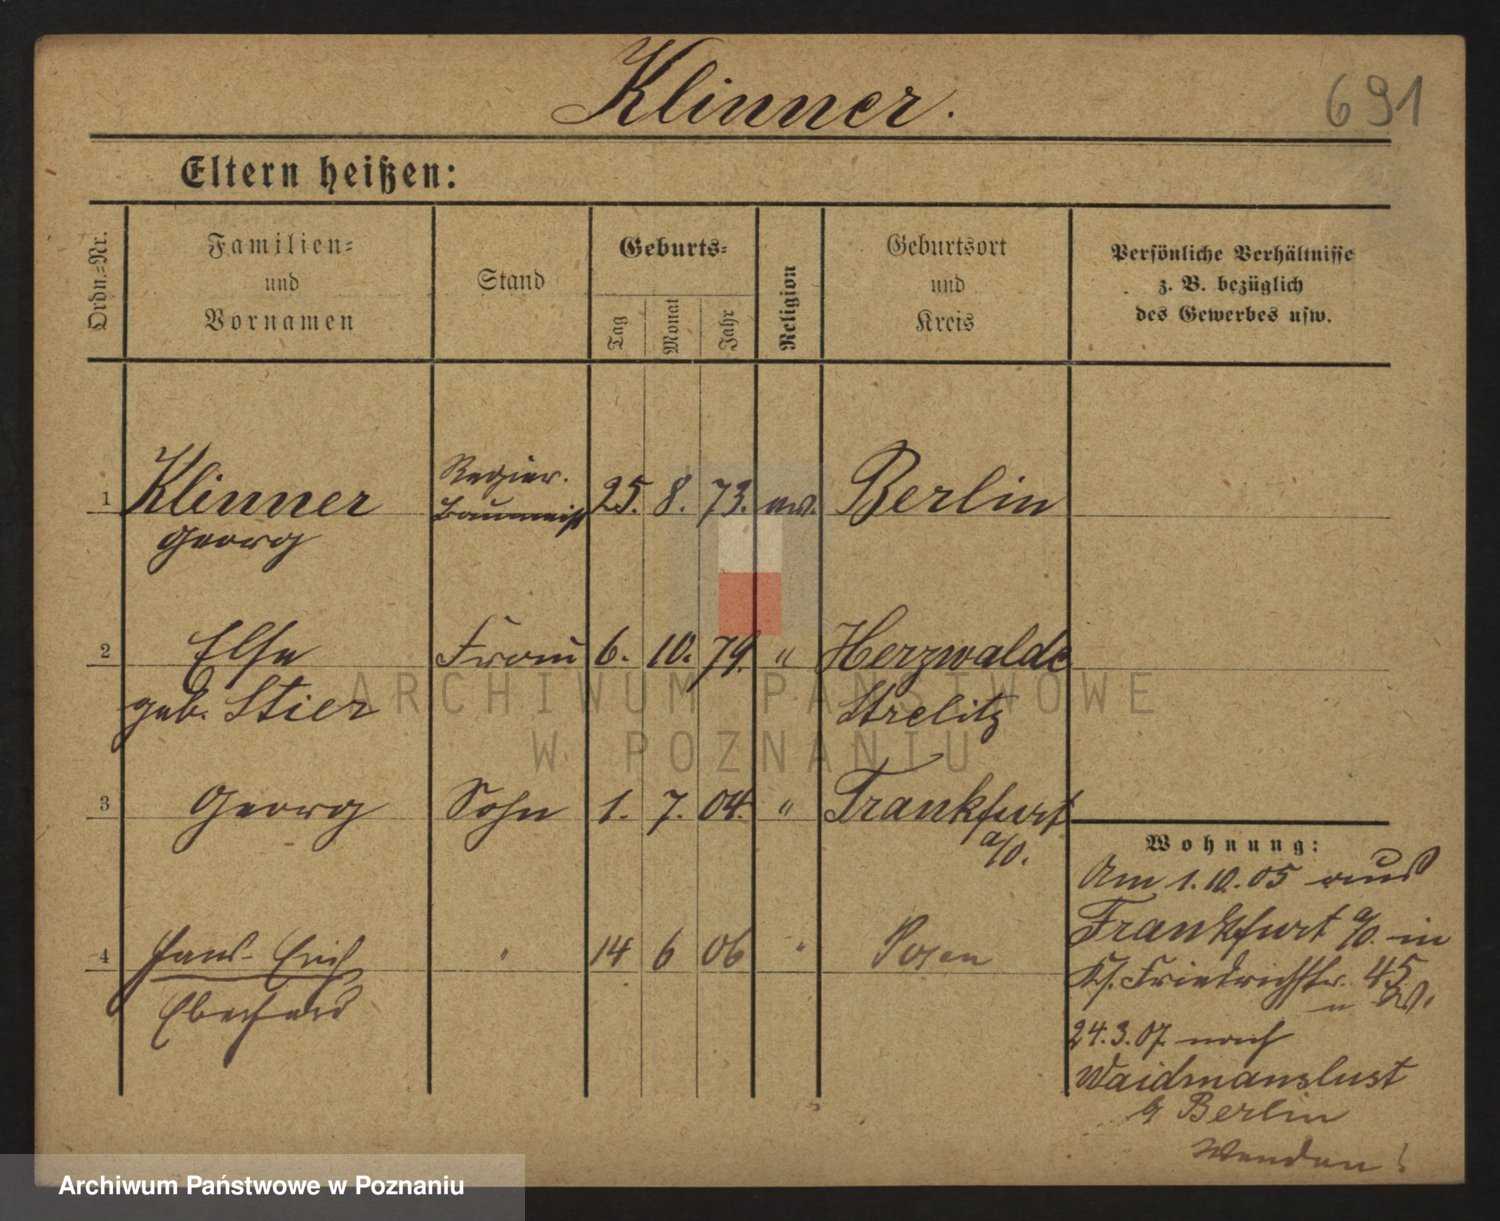 Klinner.
691
Eltern heißen:
Ordn.=Nr.
Familien=
und
Vornamen
Stand
Geburts=
Tag
Monat
Jahr
Religion
Geburtsort
und
Kreis
Persönliche Verhältnisse
z. B. bezüglich
des Gewerbes usw.
1 Klinner Regier. 25. 8. 73. ev. Berlin
Georg Baumeist
2 Else Frau 6. 10. 79. " Herzwalde
geb. Stier Strelitz
3 Georg Sohn 1. 7. 04. " Frankfurt
a/O.
4 Hans-Erich " 14 6 06 " Posen
Eberhard
Wohnung:
Am 1.10.05 aus
Frankfurt a/O. in
Friedrichstr. 45
24.3.07 nach
Waidmanslust
Berlin
ARCHIWUM PAŃSTWOWE
W POZNANIU
Archiwum Państwowe w Poznaniu